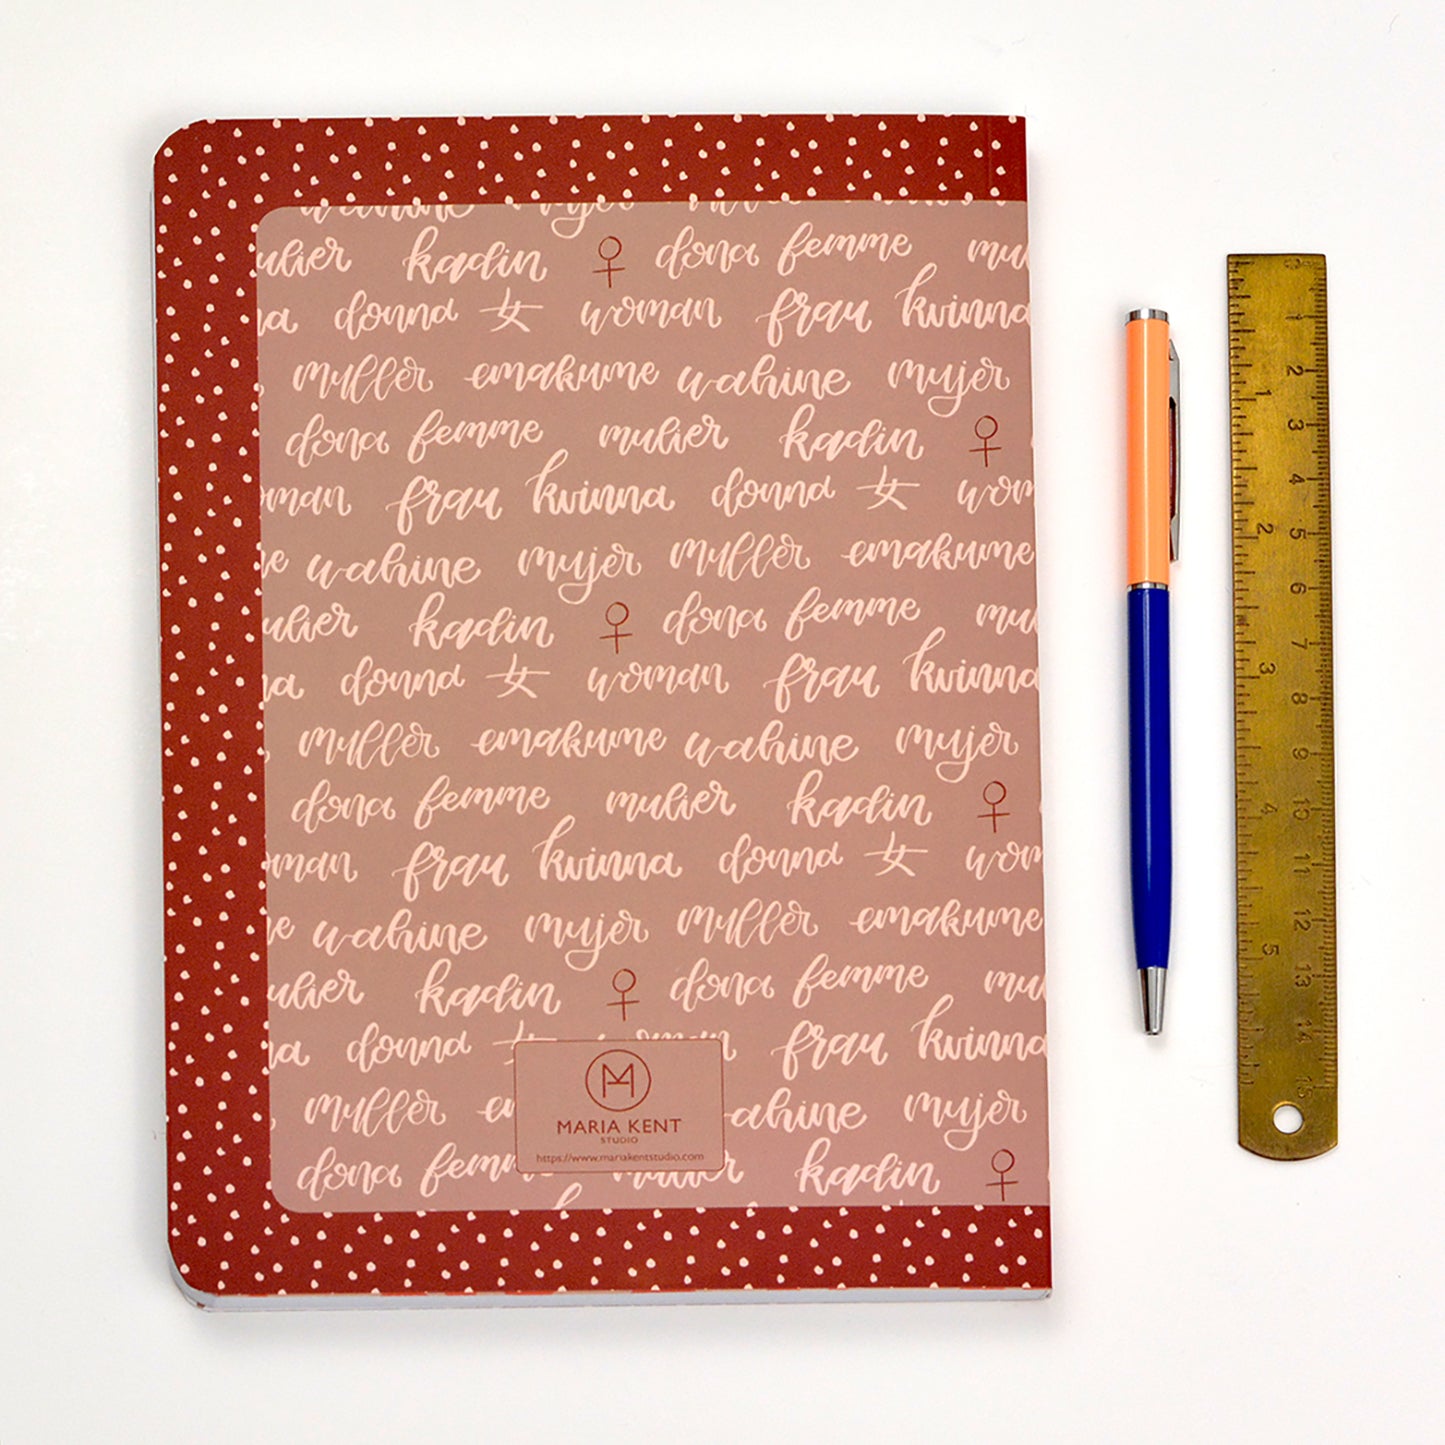 wahine mujer
mulier kadin ♀ dona femme mu
na donna 女 woman frau kvinna
muller emakume wahine mujer
dona femme mulier kadin ♀
oman frau kvinna donna 女 wom
e wahine mujer muller emakume
ulier kadin ♀ dona femme mu
na donna 女 woman frau kvinna
muller emakume wahine mujer
dona femme mulier kadin ♀
oman frau kvinna donna 女 wom
e wahine mujer muller emakume
ulier kadin ♀ dona femme mu
na donna frau kvinna
muller ahine mujer
dona femm kadin ♀
MARIA KENT
STUDIO
https://www.mariakentstudio.com
1 2 3 4 5 6 7 8 9 10 11 12 13 14 15
1 2 3 4 5